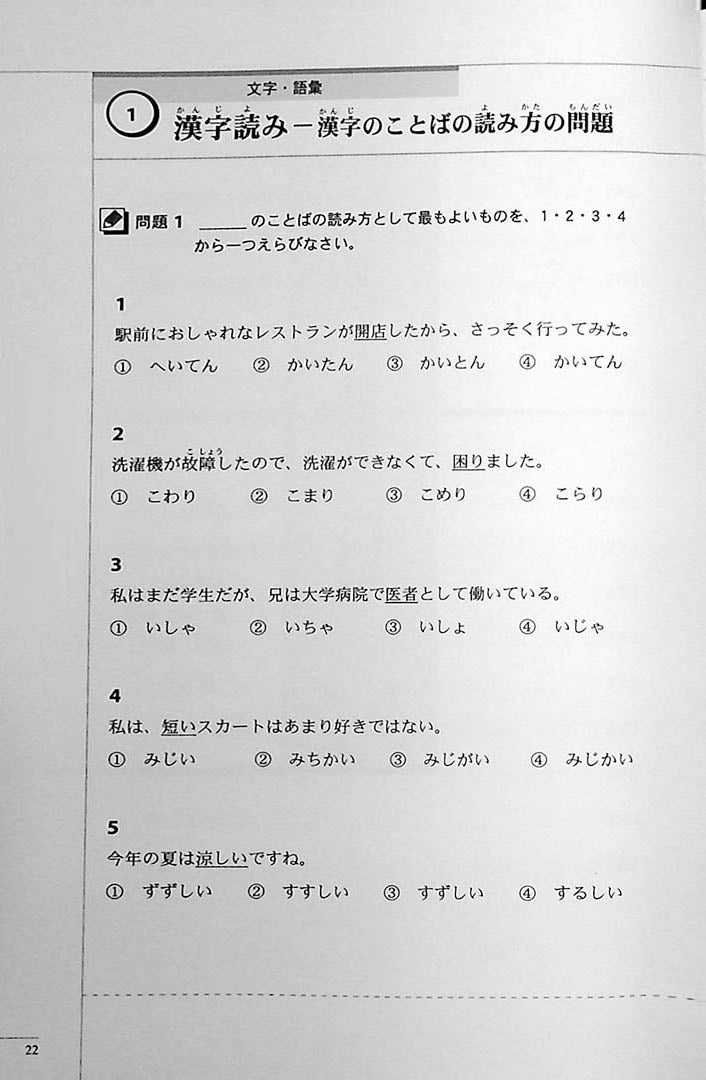 文字・語彙
1
漢字読み－漢字のことばの読み方の問題
かんじよ かんじ よ かた もんだい
問題1 ＿＿＿のことばの読み方として最もよいものを、1・2・3・4
から一つえらびなさい。
1
駅前におしゃれなレストランが開店したから、さっそく行ってみた。
① へいてん ② かいたん ③ かいとん ④ かいてん
2
こしょう
洗濯機が故障したので、洗濯ができなくて、困りました。
① こわり ② こまり ③ こめり ④ こらり
3
私はまだ学生だが、兄は大学病院で医者として働いている。
① いしゃ ② いちゃ ③ いしょ ④ いじゃ
4
私は、短いスカートはあまり好きではない。
① みじい ② みちかい ③ みじがい ④ みじかい
5
今年の夏は涼しいですね。
① ずずしい ② すすしい ③ すずしい ④ するしい
22